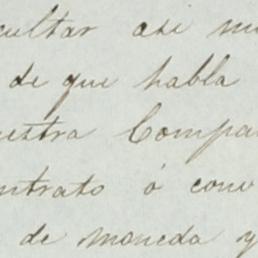 cultar asi mi
de que habla
uestra Compa
ntrato ó conv
de moneda y